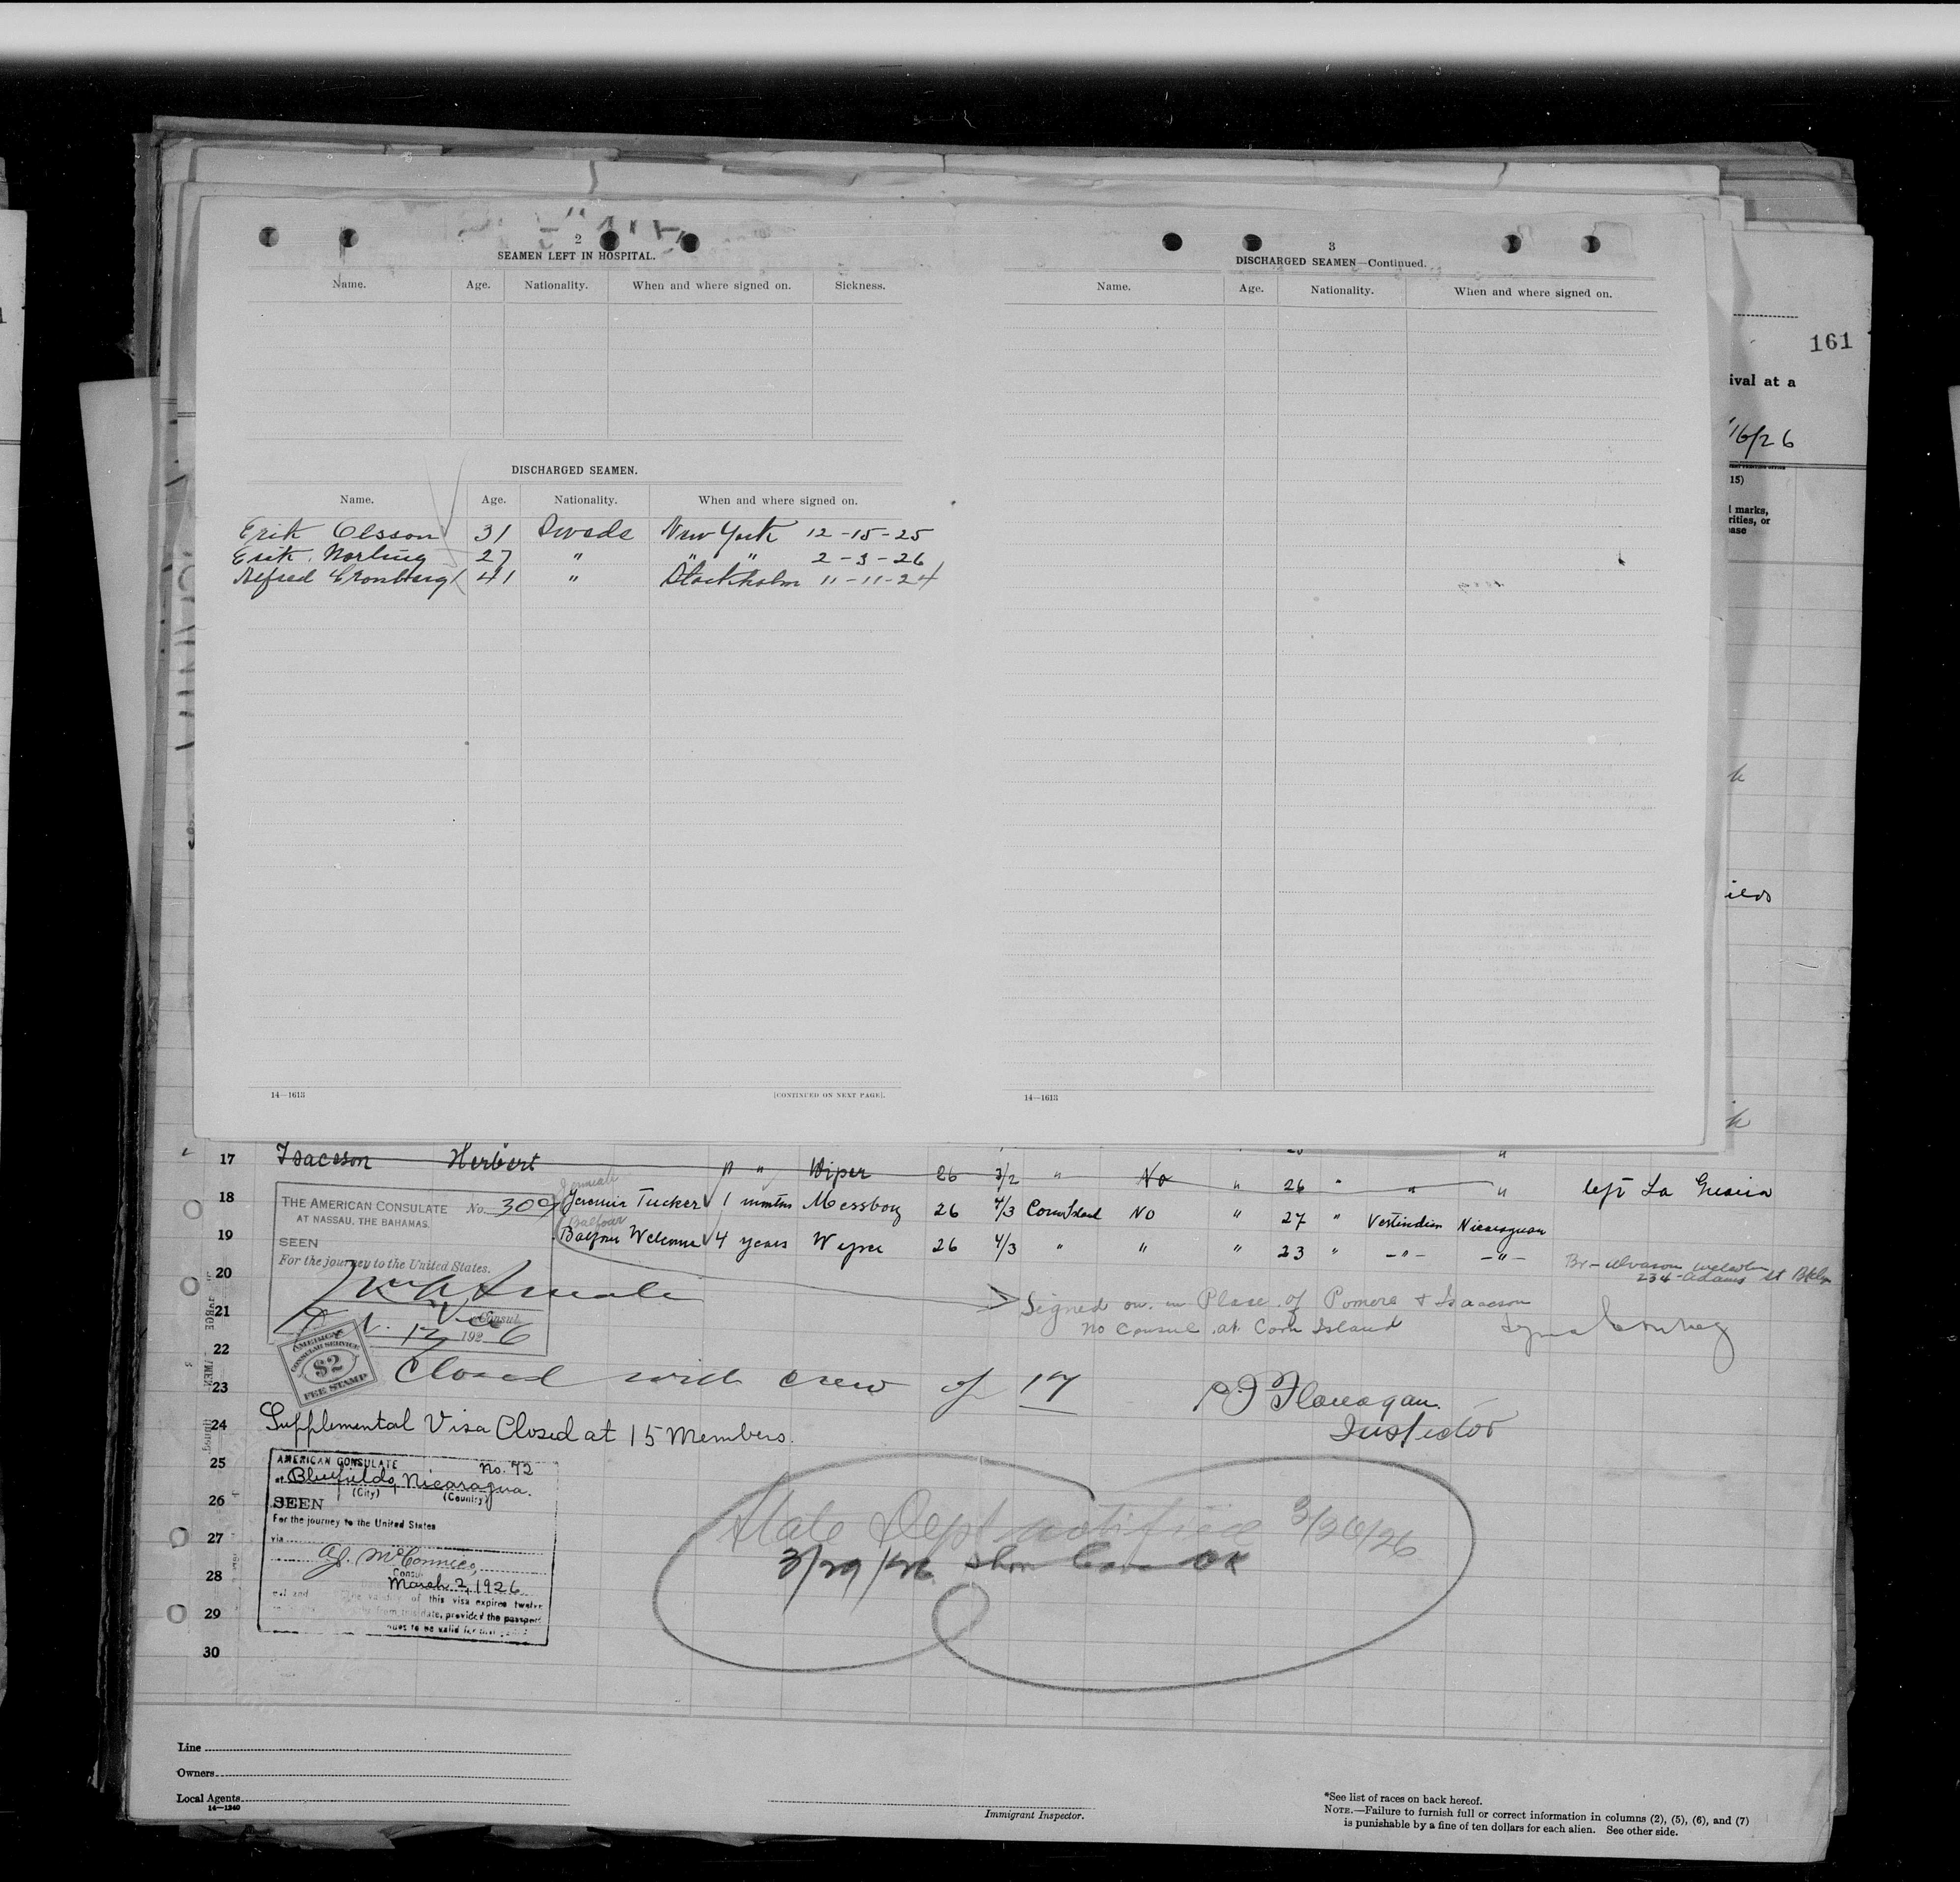 2
SEAMEN LEFT IN HOSPITAL.
Name. Age. Nationality. When and where signed on. Sickness.
DISCHARGED SEAMEN.
Name. Age. Nationality. When and where signed on.
Erik Olsson 31 Swede New York 12-15-25
Erik Norling 27 " " " 2-3-26
Alfred Cronberg 41 " Stockholm 11-11-24
14—1613
[CONTINUED ON NEXT PAGE].
3
DISCHARGED SEAMEN—Continued.
Name. Age. Nationality. When and where signed on.
14—1613
161
ival at a
16/26
15)
marks,
rities, or
ase
17 Isacson Herbert " " Wiper 26 3/2 " No " 26 " " " left La Guaira
Jeremiah
18 Jeremia Tucker 1 months Messboy 26 4/3 Corn Island NO " 27 " Vestindien Nicaraguan
Balfour
19 Balfour Welcome 4 years Wyper 26 4/3 " " " 23 " -"- -"-
234 Adams St Bklyn
THE AMERICAN CONSULATE No. 309
AT NASSAU, THE BAHAMAS.
SEEN
For the journey to the United States.
Vice Consul
12 1926
AMERICAN
CONSULAR SERVICE
$2
FEE STAMP
20
21
22
23
24
25
26
27
28
29
30
Signed on in Place of Pomers & Isaacson
No Consul at Corn Island
Closed with crew of 17
Flanagan.
Inspector
Supplemental Visa Closed at 15 Members.
AMERICAN CONSULATE No. 72
at Bluefields, Nicaragua.
(City) (Country)
SEEN
For the journey to the United States
via
A.J. McConnico,
Consul
March 2, 1926
The validity of this visa expires twelve
from this date, provided the passport
State Dept notified 3/26/26
3/29/26 OK
Line
Owners
Local Agents
14—1240
Immigrant Inspector.
*See list of races on back hereof.
NOTE.—Failure to furnish full or correct information in columns (2), (5), (6), and (7)
is punishable by a fine of ten dollars for each alien. See other side.